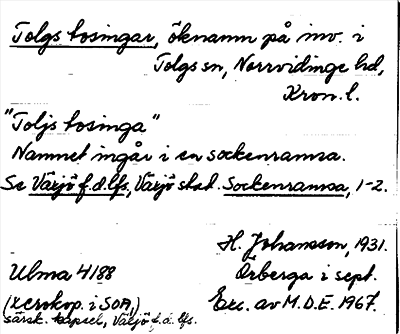 Tolgs tosingar, öknamn på inv. i
Tolgs sn, Norrvidinge hd,
Kron. l.
"Toljs tosinga"
Namnet ingår i en sockenramsa.
Se Växjö f.d. lfs, Växjö stad. Sockenramsa, 1-2.
H. Johansson, 1931.
Ulma 4188
Örberga i sept.
(xerokop. i SOA,)
Exc. av M.D.E. 1967.
särsk. kapsel, Växjö f.d. lfs.